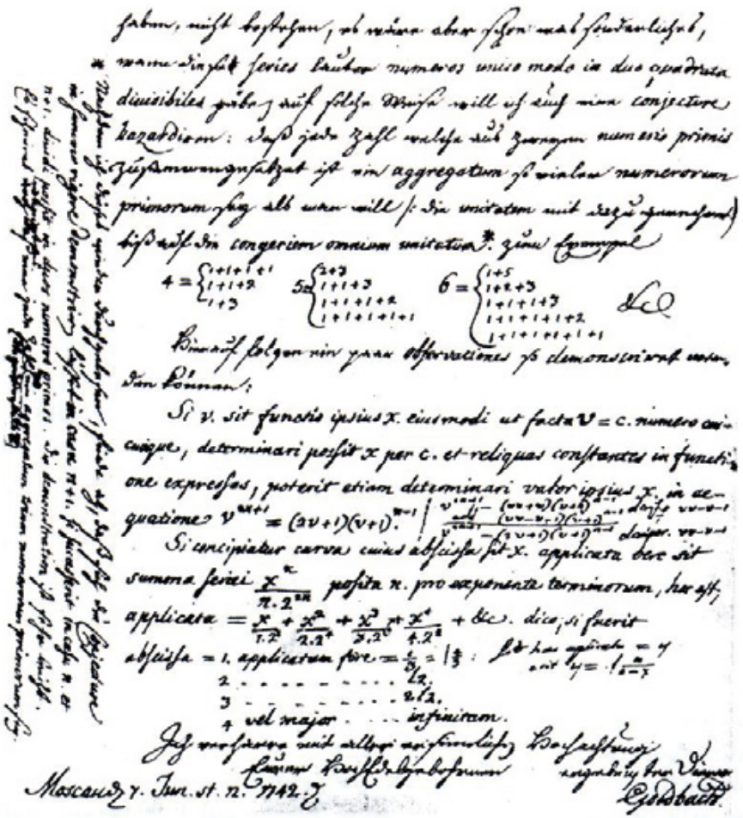 haben, nicht bestehen, es wäre aber schon was sonderliches,
wann series lauter numeros unico modo in duo quadrata
divisibiles gäbe, auf solche Weise will ich auch eine conjecture
hazardiren: daß jede Zahl welche aus zweyen numeris primis
zusammengesetzet ist ein aggregatum so vieler numerorum
primorum sey als man will /: die unitatem mit dazu gerechnet)
biß auf die congeriem omnium unitatum*: zum Exempel
4 = { 1+1+1+1
1+1+2
1+3
5 = { 2+3
1+1+3
1+1+1+2
1+1+1+1+1
6 = { 1+5
1+2+3
1+1+1+3
1+1+1+1+2
1+1+1+1+1+1
&c
Hierauf folgen ein paar observationes so demonstriret wer-
den können:
Si v. sit functio ipsius x. eiusmodi ut facta v = c. numero cui-
cunque, determinari possit x per c. et reliquas constantes in functi-
one expressas, poterit etiam determinari valor ipsius x. in ae-
quatione v^{2n+1} = (2v+1)(v+1)^{n-1}
Si concipiatur curva cuius abscissa sit x. applicata vero sit
summa seriei x^n / n.2^{2n} posita n. pro exponente terminorum, hoc est,
applicata = x/1.2^2 + x^2/2.2^4 + x^3/3.2^6 + x^4/4.2^8 + &c. dico, si fuerit
abscissa = 1. applicatam fore = l 4/3
2 . . . . . . . . l2.
3 . . . . . . . . 2l2.
4 vel major . . . . infinitam.
Ich verharre mit aller Hochachtung
Eurer HochEdelgebohrnen ergebenster Diener
Moscau d. 7. Jun. st. n. 1742. Goldbach.
* Nachdem ich dieses wieder durchgelesen, finde ich, daß sich die Conjecture
in summo rigore demonstriren lässet in casu n+1. si successerit in casu n. et
n+1. dividi possit in duos numeros primos. Die demonstration ist sehr leicht.
Es scheinet daß eine jede Zahl aggregatum trium numerorum primorum sey.